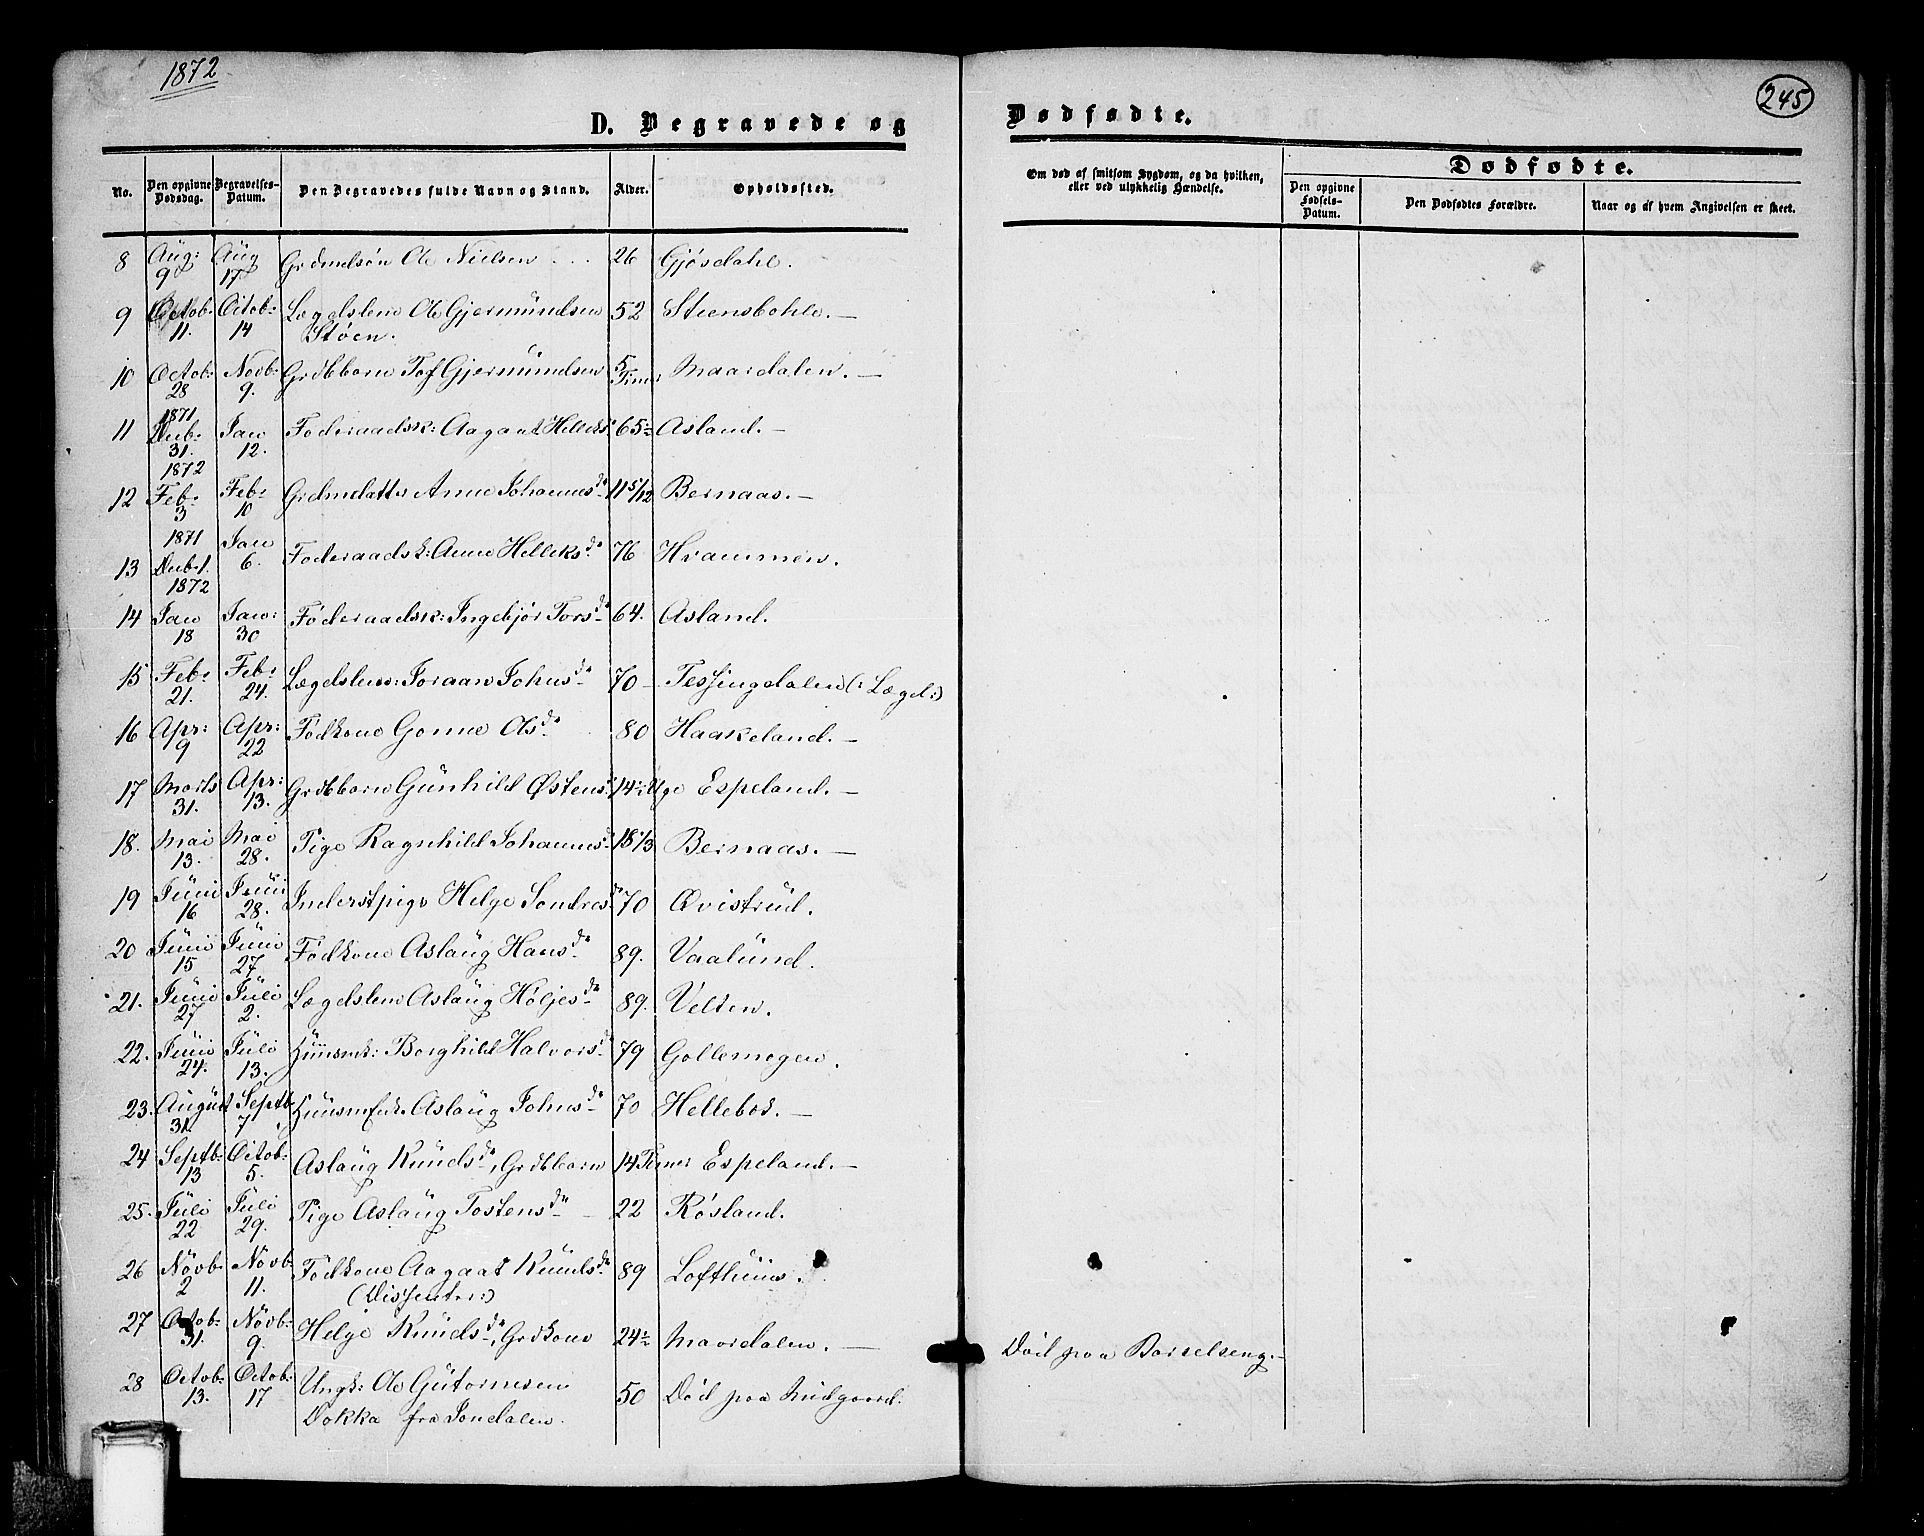 1872
245
D. Begravede og Dødfødte.
No. Den opgivne Dødsdag. Begravelses-Datum. Den Begravedes fulde Navn og Stand. Alder. Opholdssted. Om død af smitsom Sygdom, og da hvilken, eller ved ulykkelig Hændelse. Dødfødte.
Den opgivne Fødsels-Datum. Den Dødfødtes Forældre. Naar og af hvem Angivelsen er skeet.
8 Aug: 9 Aug 17 Grdmdsøn Ole Nielsen 26 Gjøsdahl.
9 Octob: 11. Octob: 14 Lægdslem Ole Gjermundsen Støen. 52 Steensbohle.—
10 Octob: 28 Novb: 9. Grdbbarn Tof Gjermundsen 5 Timer Maardalen.—
11 1871. Decb: 31. Jan 12. Føderaadsk: Aagaat Helleksd 65½ Aasland.—
12 1872 Feb: 3 Feb: 10 Grdmdatter Anne Johannesda 11 5/12 Bernaas.—
13 1871 Decb 1. Jan 6. Føderaadsk: Anne Helleksda 76 Hvammen.
14 1872 Jan 18 Jan: 30 Føderaadsk: Ingebjør Torsda 64. Asland.
15 Feb: 21. Feb: 24. Lægdslem: Joraan Johnsda 70 Tessingdalen (: Lægd:)
16 Apr: 9 Apr: 22 Fødkone Gonne Asda 80 Haakeland.—
17 Marts 31. Apr: 13. Grdbbarn Gunhild Østensd 14 Uge Espeland.—
18. Mai 13. Mai 28. Pige Ragnhild Johannesd 18 1/3 Bernaas.—
19 Juni 16 Juni 28. Inderstpige Helge Sondresda 70 Qvistrud.
20 Juni 15 Juni 27 Fødkone Aslaug Hansda 89. Vaalund.
21. Juni 27 Juli 2. Lægdslem Aslaug Høljesda 89. Velten.
22. Juni 24. Juli 13. Huusmk: Borghild Halvorsd 79 Gollemogen.
23. August 31. Septb: 7 Huusmfk. Aslaug Johnsda 70 Hellebos.—
24 Septb: 13 Octob: 5. Aslaug Knudsda, Grdbbarn 14 Timer Espeland.—
25. Juli 22 Juli 29. Pige Aslaug Tostensda 22 Røsland.
26 Novb: 2 Novb: 11. Fødkone Aagaat Knudsda 89 Lofthuus.
(Dissenter:)
27 Octob: 31. Novb: 9. Helge Knudsda, Grdkone 24½ Maardalen.— Død paa Borselseng.—
28 Octob: 13. Octob: 17 Ungk: Ole Gutormsen 50 Død paa Midgaard.
Dokka fra Jondalen.